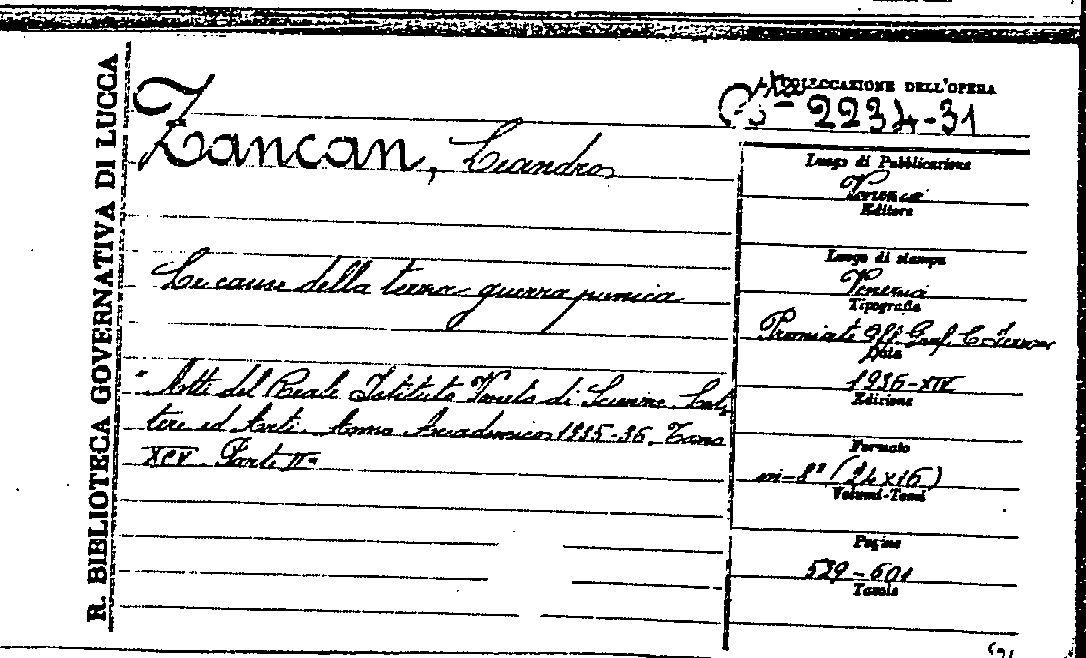 R. BIBLIOTECA GOVERNATIVA DI LUCCA
Zancan, Leandro
Le cause della terza guerra punica
"Atti del Reale Istituto Veneto di Scienze Let,
tere ed Arti. Anno Accademico 1935-36. Tomo
XCV. Parte IIª
COLLOCAZIONE DELL'OPERA
2234-31
Luogo di Pubblicazione
Venezia
Editore
Luogo di stampa
Venezia
Tipografia
Premiate Off. Graf. C. Ferrari
Data
1936-XIV
Edizione
Formato
in-8° (24x16)
Volumi-Tomi
Pagine
529-601
Tavole